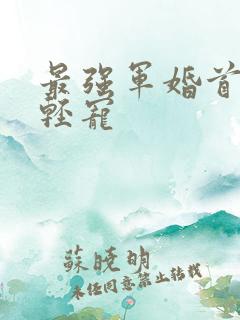 最强军婚首
轻宠
苏晓明
未经同意禁止转载